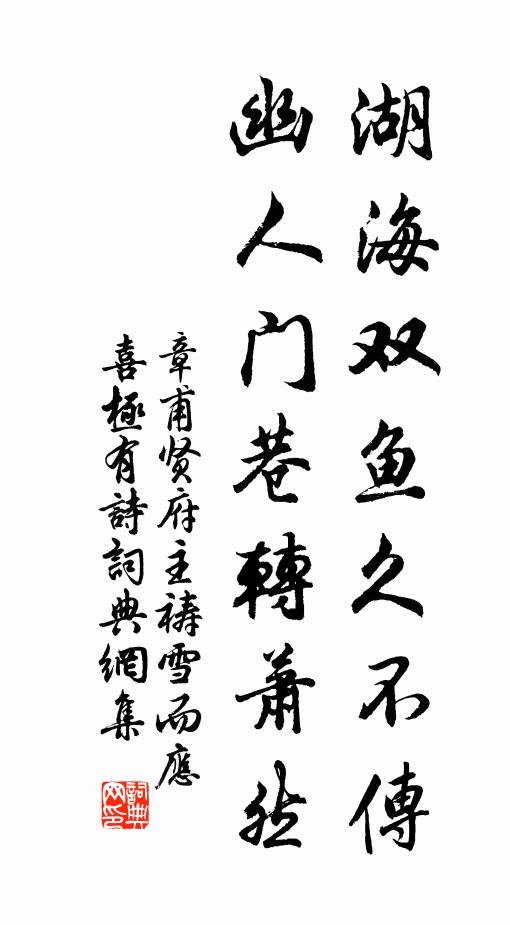 湖海双鱼久不傳
幽人门巷轉蕭然
章甫贤府主祷雪而應
喜極有詩詞典網集
詞典网印